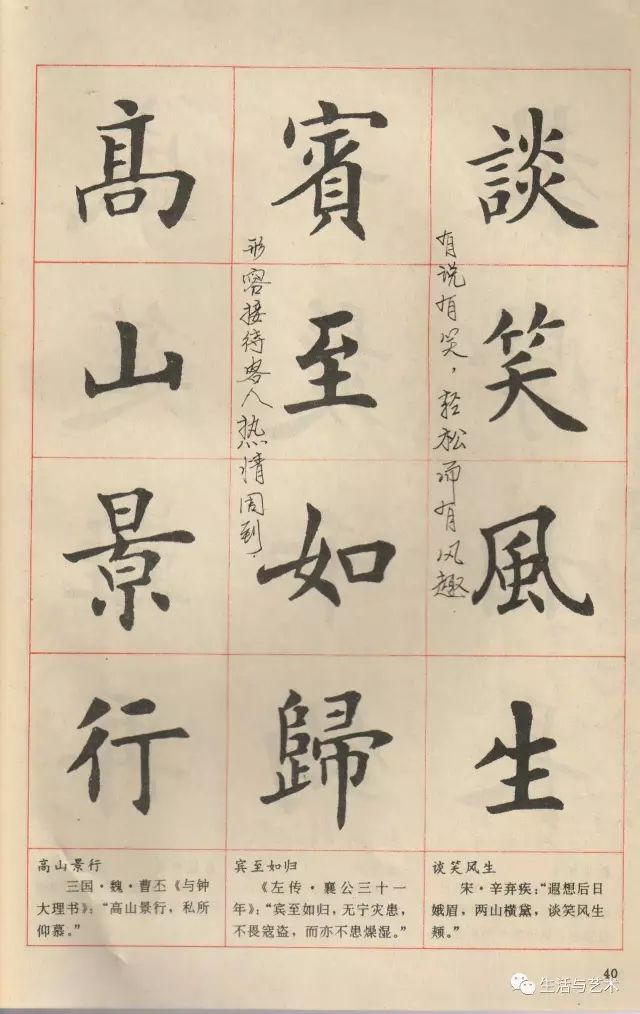 談笑風生
有说有笑，轻松而有风趣.
賓至如歸
形容接待客人热情周到.
高山景行
高山景行
三国·魏·曹丕《与钟
大理书》：“高山景行，私所
仰慕。”
宾至如归
《左传·襄公三十一
年》：“宾至如归，无宁灾患，
不畏寇盗，而亦不患燥湿。”
谈笑风生
宋·辛弃疾：“遐想后日
娥眉，两山横黛，谈笑风生
颊。”
40
生活与艺术